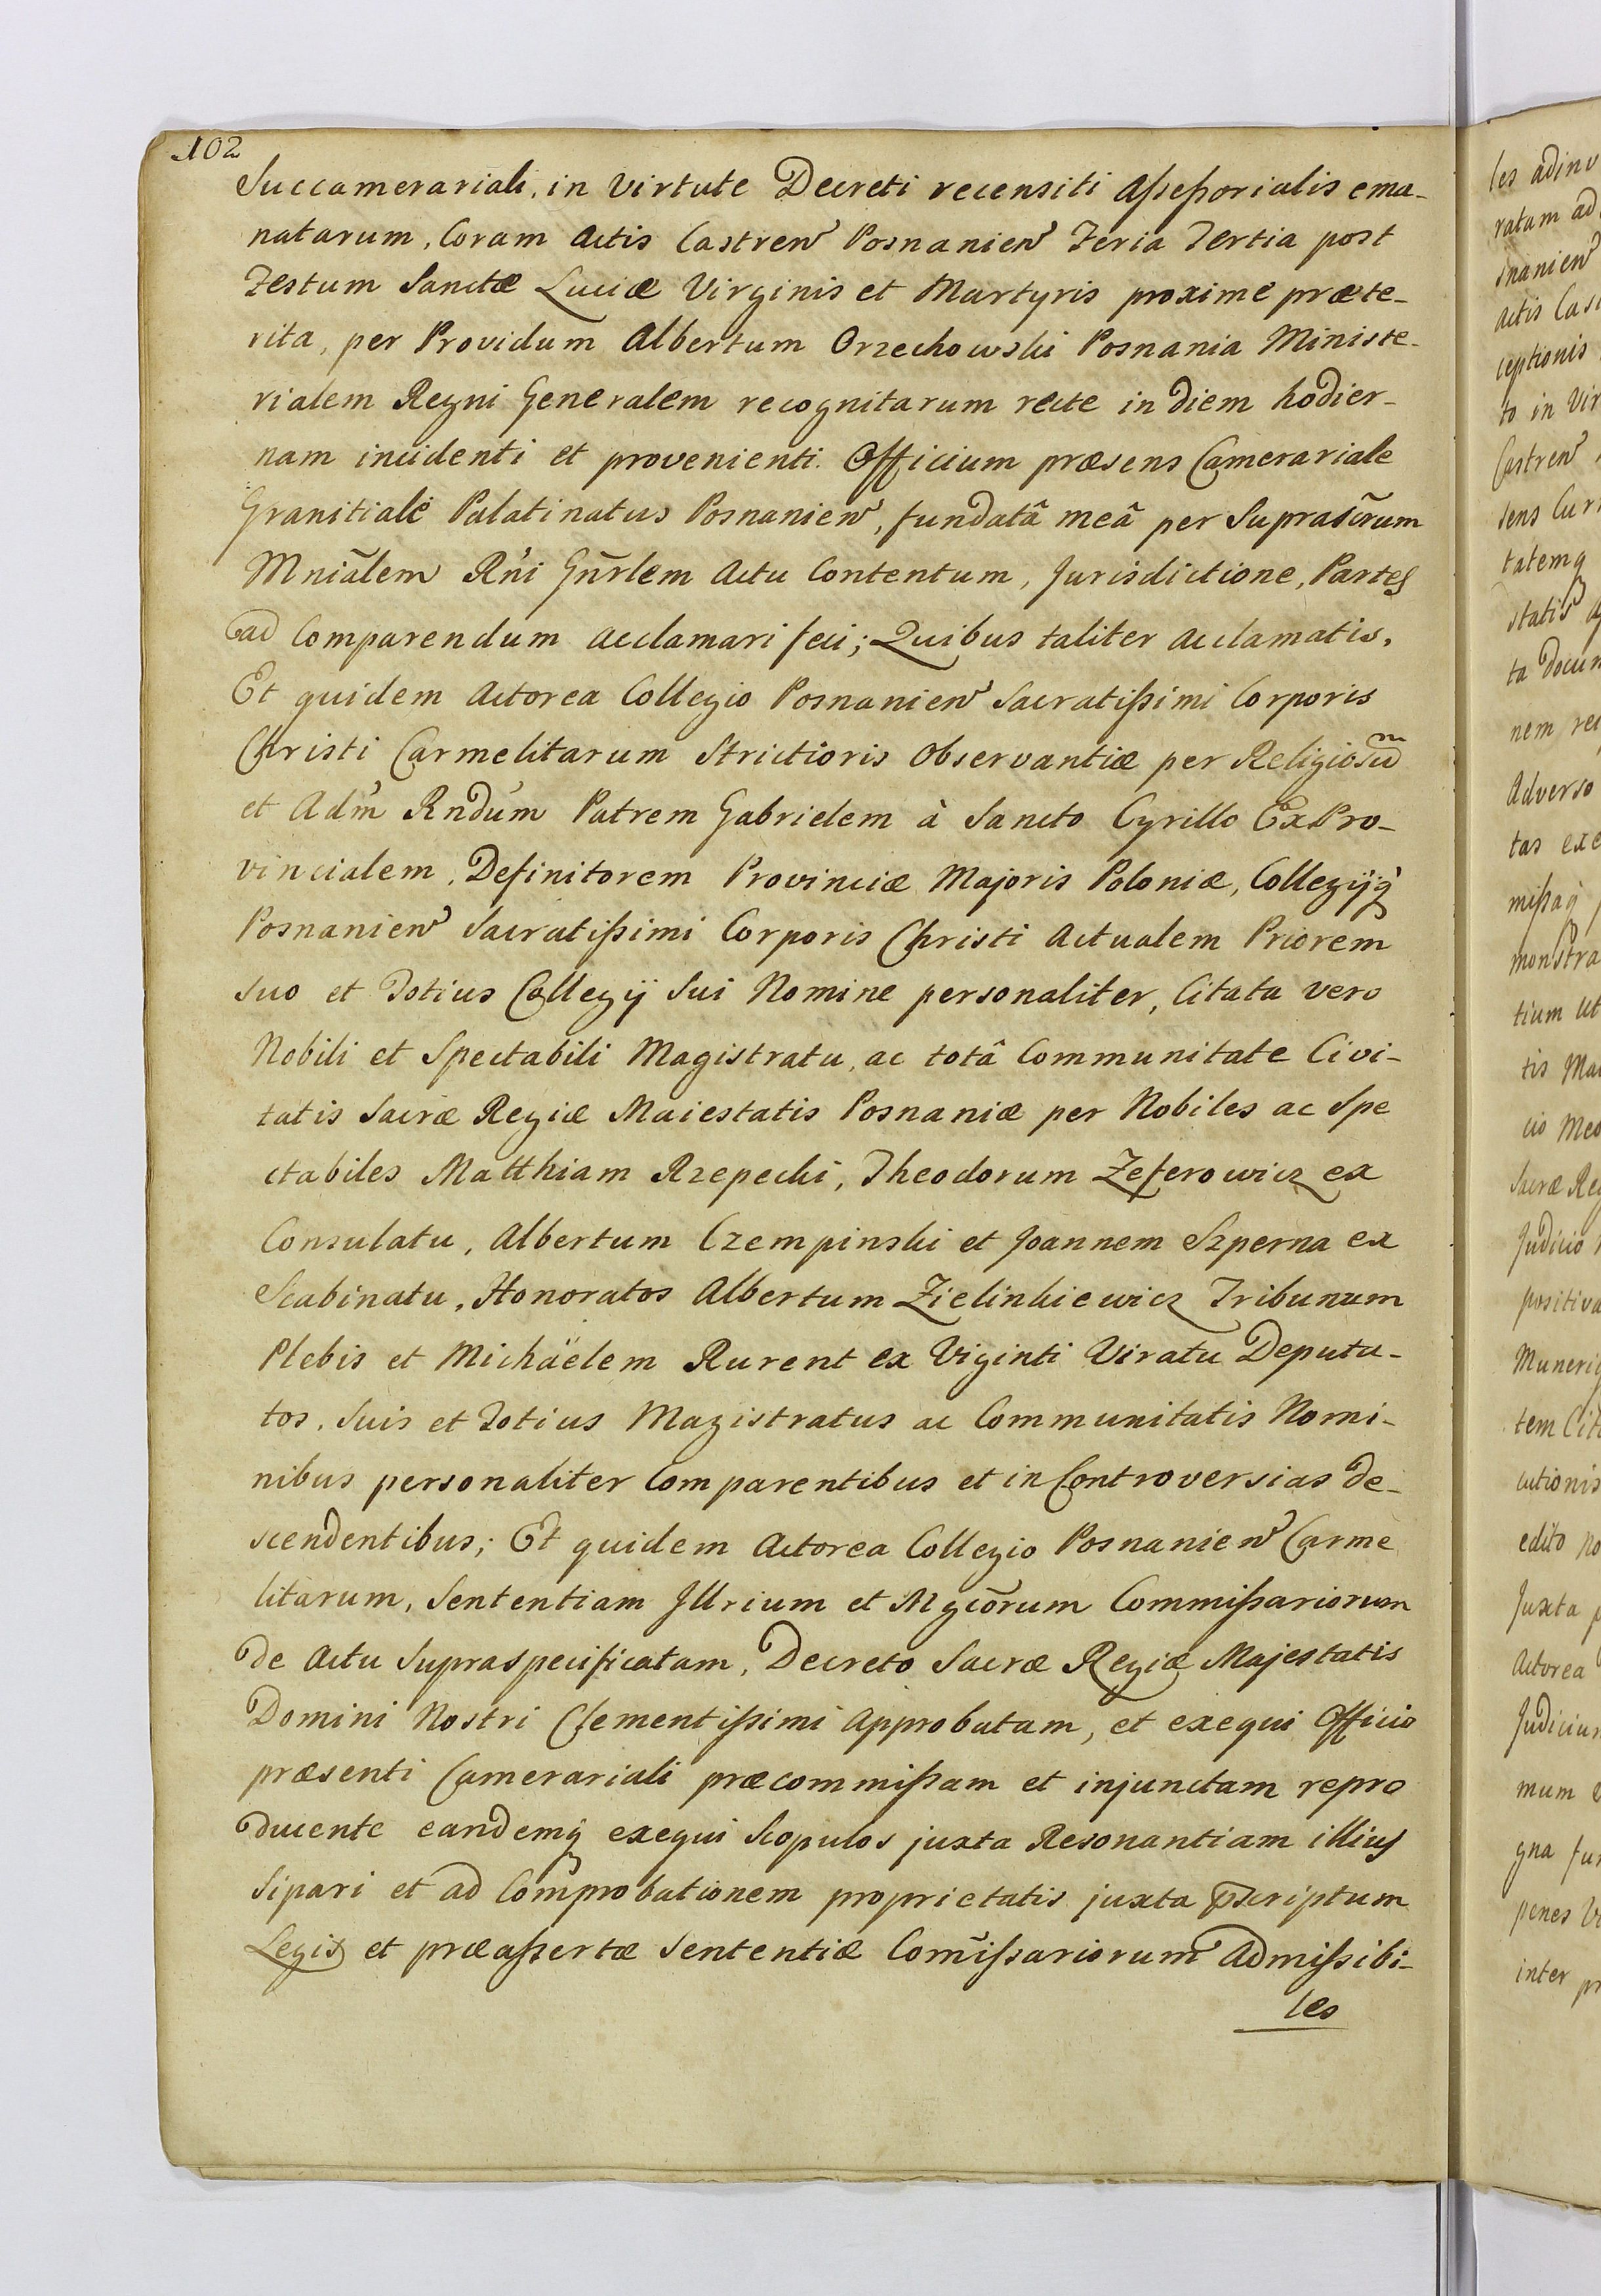 102
Succamerariali, in Virtute Decreti recensiti Assessorialis ema-
natarum, Coram Actis Castren Posnanien Feria Tertia post
Festum Sanctæ Luciæ Virginis et Martyris proxime præte-
rita, per Providum Albertum Orzechowski Posnania Ministe-
rialem Regni Generalem recognitarum recte in diem hodier-
nam incidenti et provenienti. Officium præsens Camerariale
Granitiale Palatinatus Posnanien, fundatâ meâ per Suprascr̃um
Mniãlem R'ni Gñrlem Actu Contentum, Jurisdictione, Partes
ad Comparendum acclamari feci; Quibus taliter acclamatis,
Et quidem Actorea Collegio Posnanien Sacratissimi Corporis
Christi Carmelitarum Strictioris Observantiæ per Religiosũm
et Adm̃ Rndum Patrem Gabrielem à Sancto Cyrillo ExPro-
vincialem, Definitorem Provinciæ Majoris Poloniæ, Collegijq̃
Posnanien Sacratissimi Corporis Christi Actualem Priorem
Suo et Totius Collegij Sui Nomine personaliter, Citata vero
Nobili et Spectabili Magistratu, ac totâ Communitate Civi-
tatis Sacræ Regiæ Maiestatis Posnaniæ per Nobiles ac Spe
ctabiles Matthiam Rzepecki, Theodorum Zeferowicz ex
Consulatu, Albertum Czempinski et Joannem Szperna ex
Scabinatu, Honoratos Albertum Zielinkiewicz Tribunum
Plebis et Michäelem Rurent ex Viginti Viratu Deputa-
tos, Suis et Totius Magistratus ac Communitatis Nomi-
nibus personaliter Comparentibus et in Controversias de-
scendentibus; Et quidem Actorea Collegio Posnanien Carme
litarum, Sententiam Jllrium et Mgcõrum Commissariorum
de Actu Supraspecificatam, Decreto Sacræ Regiæ Majestatis
Domini Nostri Clementissimi Approbatam, et exequi Officio
præsenti Camerariali præcommissam et injunctam repro
ducente eandemq̃ exequi Scopulos juxta Resonantiam illius
Sipari et ad Com̃probationem proprietatis juxta p̃scriptum
Legis et præassertæ Sententiæ Com̃issariorum Admissibi-
les
les adinv
ratam ad
snanien
Actis Cas
ceptionis
to in Vir
Castren
sens Cur
tatemq
statis
ta Docum
nem rec
Adverso
tas exe
missaq
monstra
tium ut
tis Mai
cio Meo
Sacræ Reg
Judicio
positiva
Muneris
tem Cit
cutionis
edito no
Juxta p
Actorea
Judicium
mum
gna fun
penes
inter pr